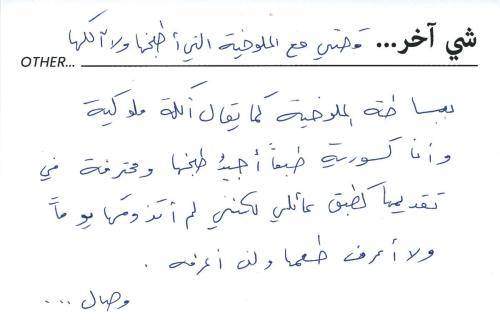 شي آخر... قصتي مع الملوخية التي أطبخها ولا آكلها
OTHER...
ببساطة الملوخية كما يقال أكلة ملوكية
وأنا كسورية طبعاً أجيدُ طبخها ومحترفة في
تقديمها كطبق عائلي لكنني لم أتذوقها يوماً
ولا أعرف طعمها ولن أعرفه .
وصال ...